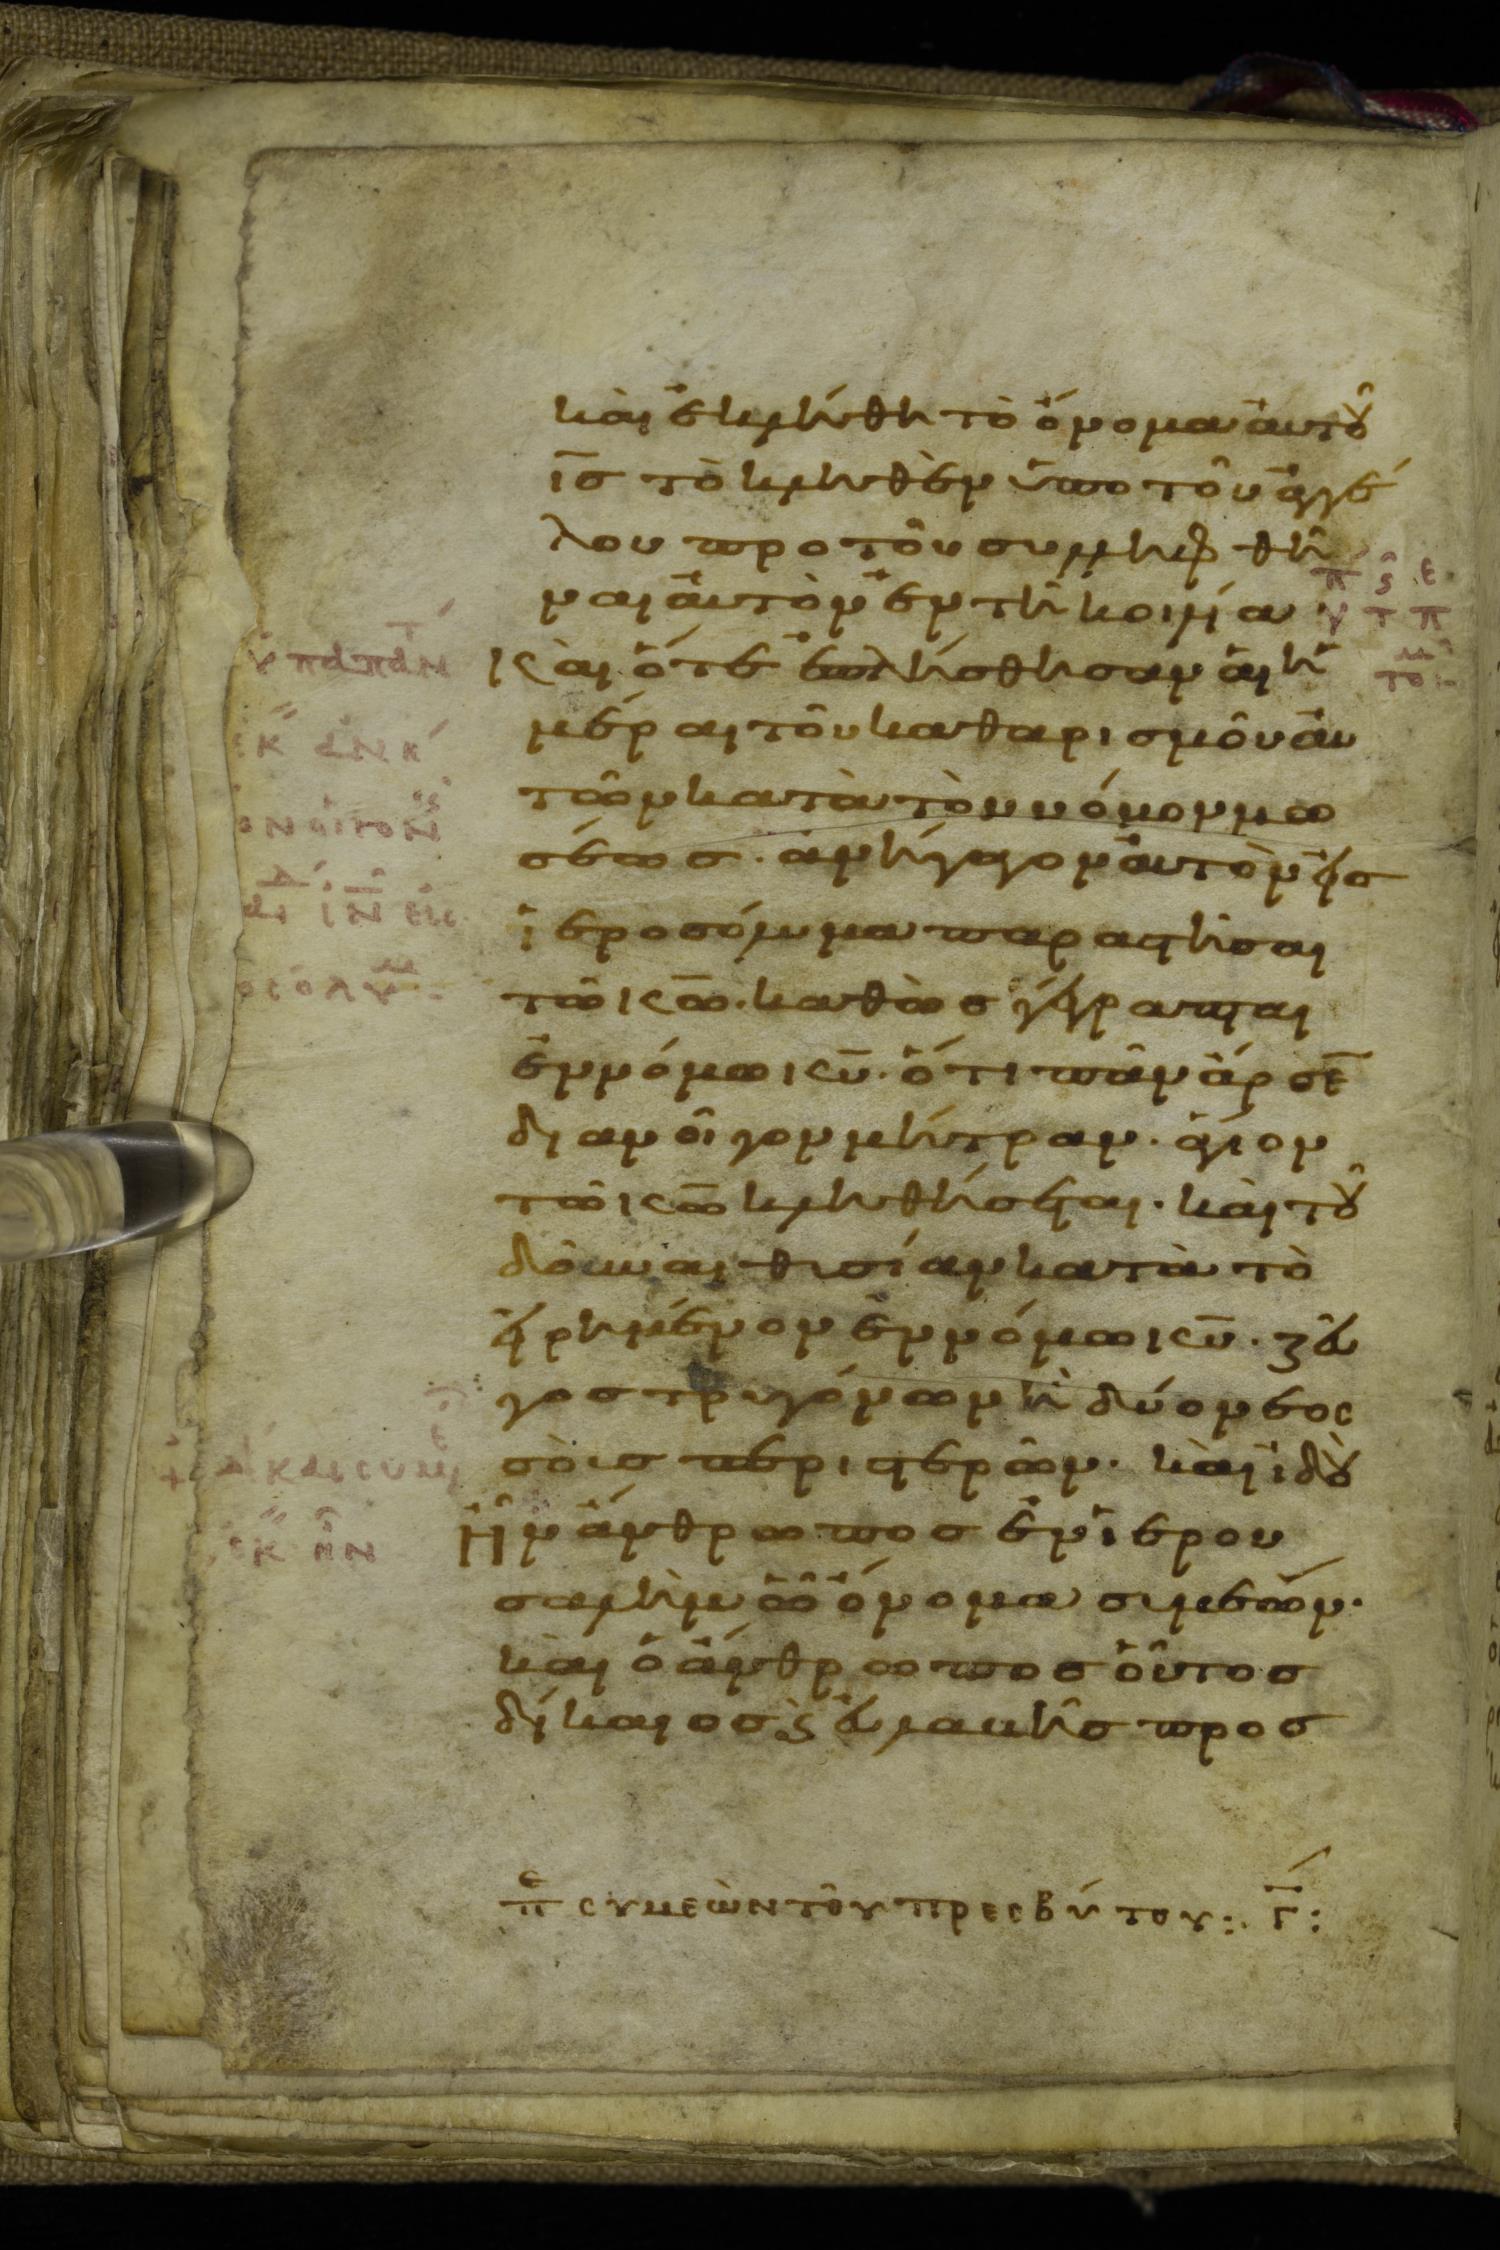 καὶ ἐκλήθη τὸ ὄνομα αὐτοῦ
ισ τὸ κληθὲν ὑπο τοῦ ἀγγέ
λου προ τοῦ συλληφθῆ
ναι αὐτὸν ἐν τῆ κοιλία
Και ὅτε ἐπλήσθησαν ἁι ἡ
μέραι τοῦ καθαρισμοῦ αυ
τῶν κατὰ τὸν νόμον μω
σέωσ· ἀνήγαγον αυτὸν εἰσ
ἱεροσόλυμα παραστῆσαι
τῶ κω· καθὼσ γέγραπται
ἐν νόμω κυ· ὅτι πᾶν ἄρσε
διανοῖγον μήτραν· ἅγιον
τῶ κω κληθήσεται· καὶ τοῦ
δοῦναι θυσίαν κατὰ τὸ
εἰρημένον ἐν νόμω κυ· ζεῦ
γοσ τρυγόνων ἢ δύο νεος
σοὺσ περιστερῶν· καὶ ἰδοὺ
Ἦν ἄνθρωποσ ἐν ἱερου
σαλὴμ ὧ ὄνομα σιμεών·
καὶ ὁ ἄνθρωποσ οὗτοσ
δίκαιοσ ϗ εὐλαβῆσ προσ
πε συμεὼν τοῦ πρεσβύτου:· Γ: